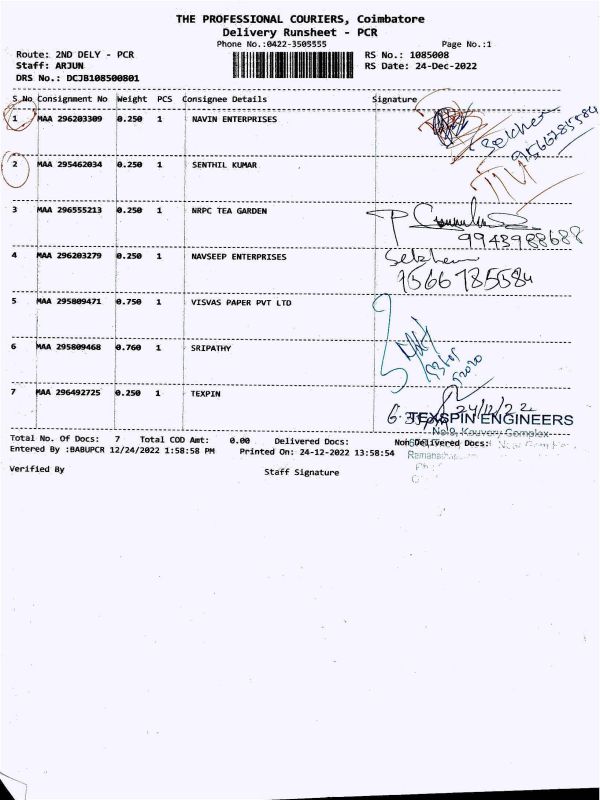 THE PROFESSIONAL COURIERS, Coimbatore
Delivery Runsheet - PCR
Phone No.:0422-3505555 Page No.:1
Route: 2ND DELY - PCR RS No.: 1085008
Staff: ARJUN RS Date: 24-Dec-2022
DRS No.: DCJB108500801
S No Consignment No Weight PCS Consignee Details Signature
1 MAA 296203309 0.250 1 NAVIN ENTERPRISES
Selcher
9566785584
2 MAA 295462034 0.250 1 SENTHIL KUMAR
3 MAA 296555213 0.250 1 NRPC TEA GARDEN
9943988688
4 MAA 296203279 0.250 1 NAVSEEP ENTERPRISES
9566785584
5 MAA 295809471 0.750 1 VISVAS PAPER PVT LTD
6 MAA 295809468 0.760 1 SRIPATHY
7 MAA 296492725 0.250 1 TEXPIN
24/12/22
TEXSPIN ENGINEERS
Total No. Of Docs: 7 Total COD Amt: 0.00 Delivered Docs: Non Delivered Docs:
Entered By :BABUPCR 12/24/2022 1:58:58 PM Printed On: 24-12-2022 13:58:54
Verified By Staff Signature